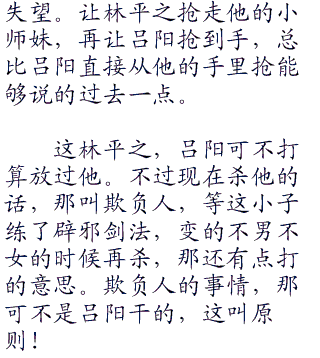 失望。让林平之抢走他的小
师妹，再让吕阳抢到手，总
比吕阳直接从他的手里抢能
够说的过去一点。
这林平之，吕阳可不打
算放过他。不过现在杀他的
话，那叫欺负人，等这小子
练了辟邪剑法，变的不男不
女的时候再杀，那还有点打
的意思。欺负人的事情，那
可不是吕阳干的，这叫原
则！